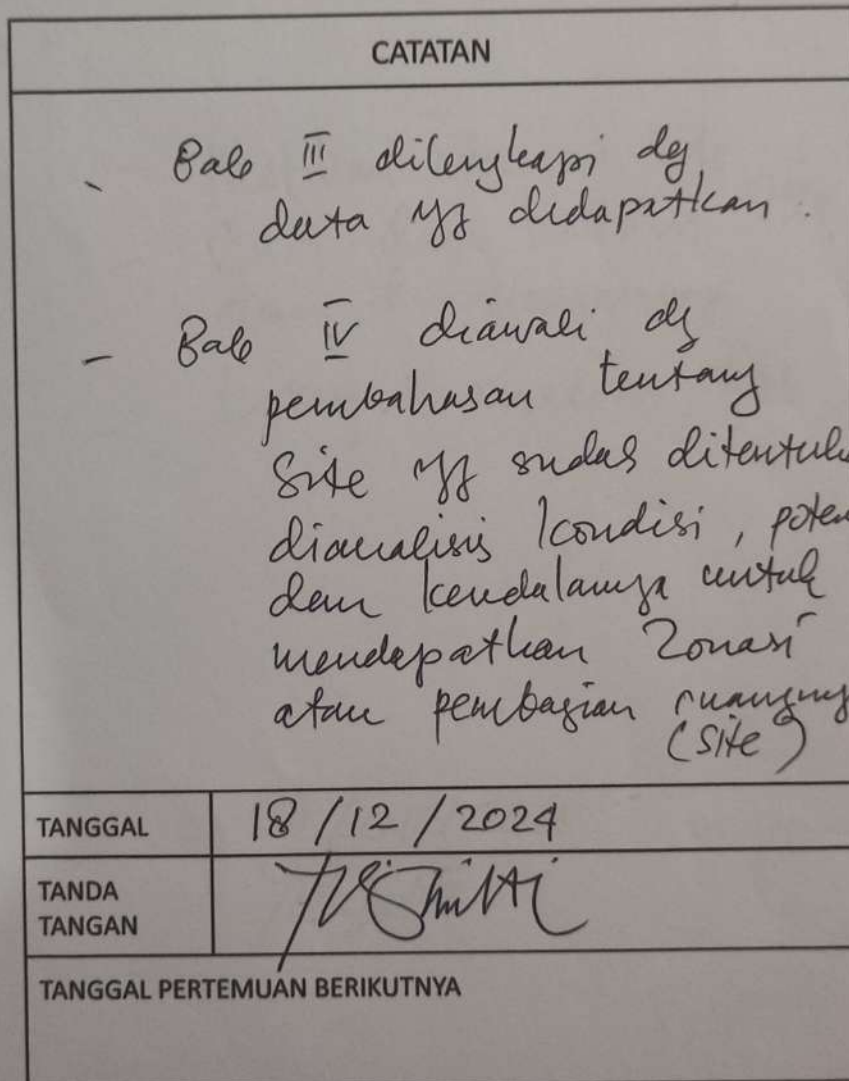 CATATAN
- Bab III dilengkapi dg
data yg didapatkan.
- Bab IV diawali dg
pembahasan tentang
Site yg sudah ditentuk
dianalisis kondisi, poten
dan kendalanya untuk
mendapatkan Zonasi
atau pembagian ruangny
(site)
TANGGAL 18/12/2024
TANDA
TANGAN
TANGGAL PERTEMUAN BERIKUTNYA